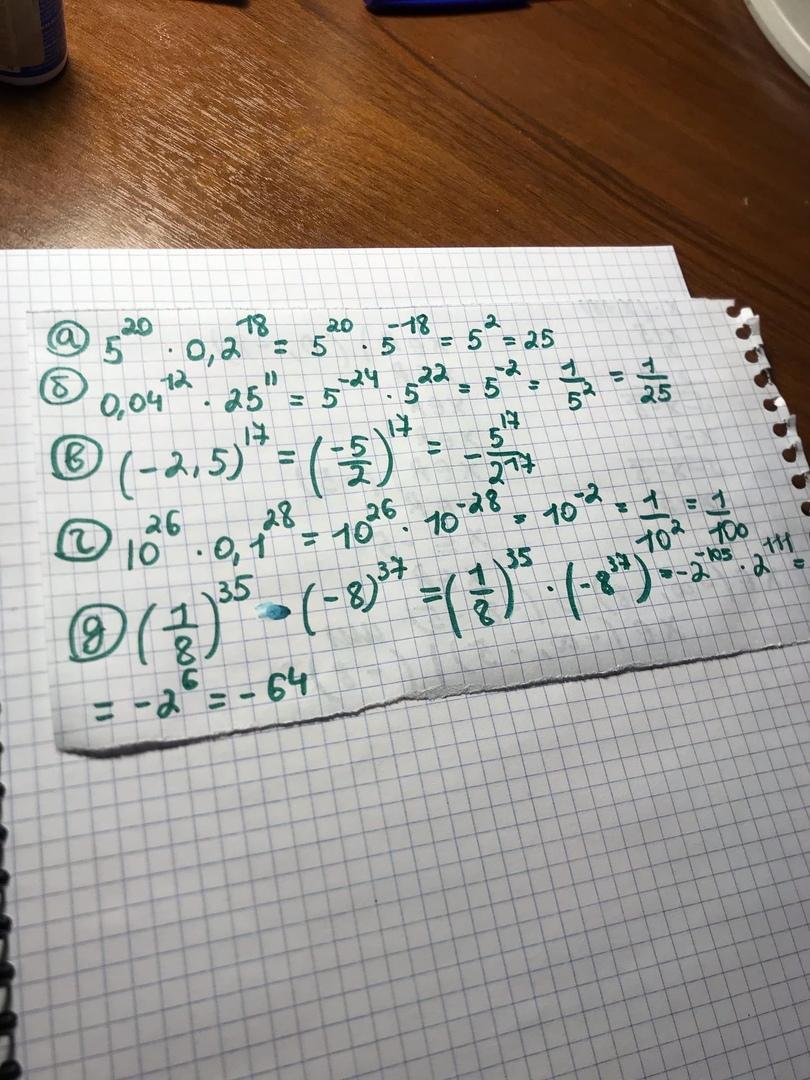 а) 5²⁰ · 0,2¹⁸ = 5²⁰ · 5⁻¹⁸ = 5² = 25
б) 0,04¹² · 25¹¹ = 5⁻²⁴ · 5²² = 5⁻² = 1/5² = 1/25
в) (-2,5)¹⁷ = (-5/2)¹⁷ = - 5¹⁷/2¹⁷
г) 10²⁶ · 0,1²⁸ = 10²⁶ · 10⁻²⁸ = 10⁻² = 1/10² = 1/100
д) (1/8)³⁵ · (-8)³⁷ = (1/8)³⁵ · (-8³⁷) = -2⁻¹⁰⁵ · 2¹¹¹ =
= -2⁶ = -64